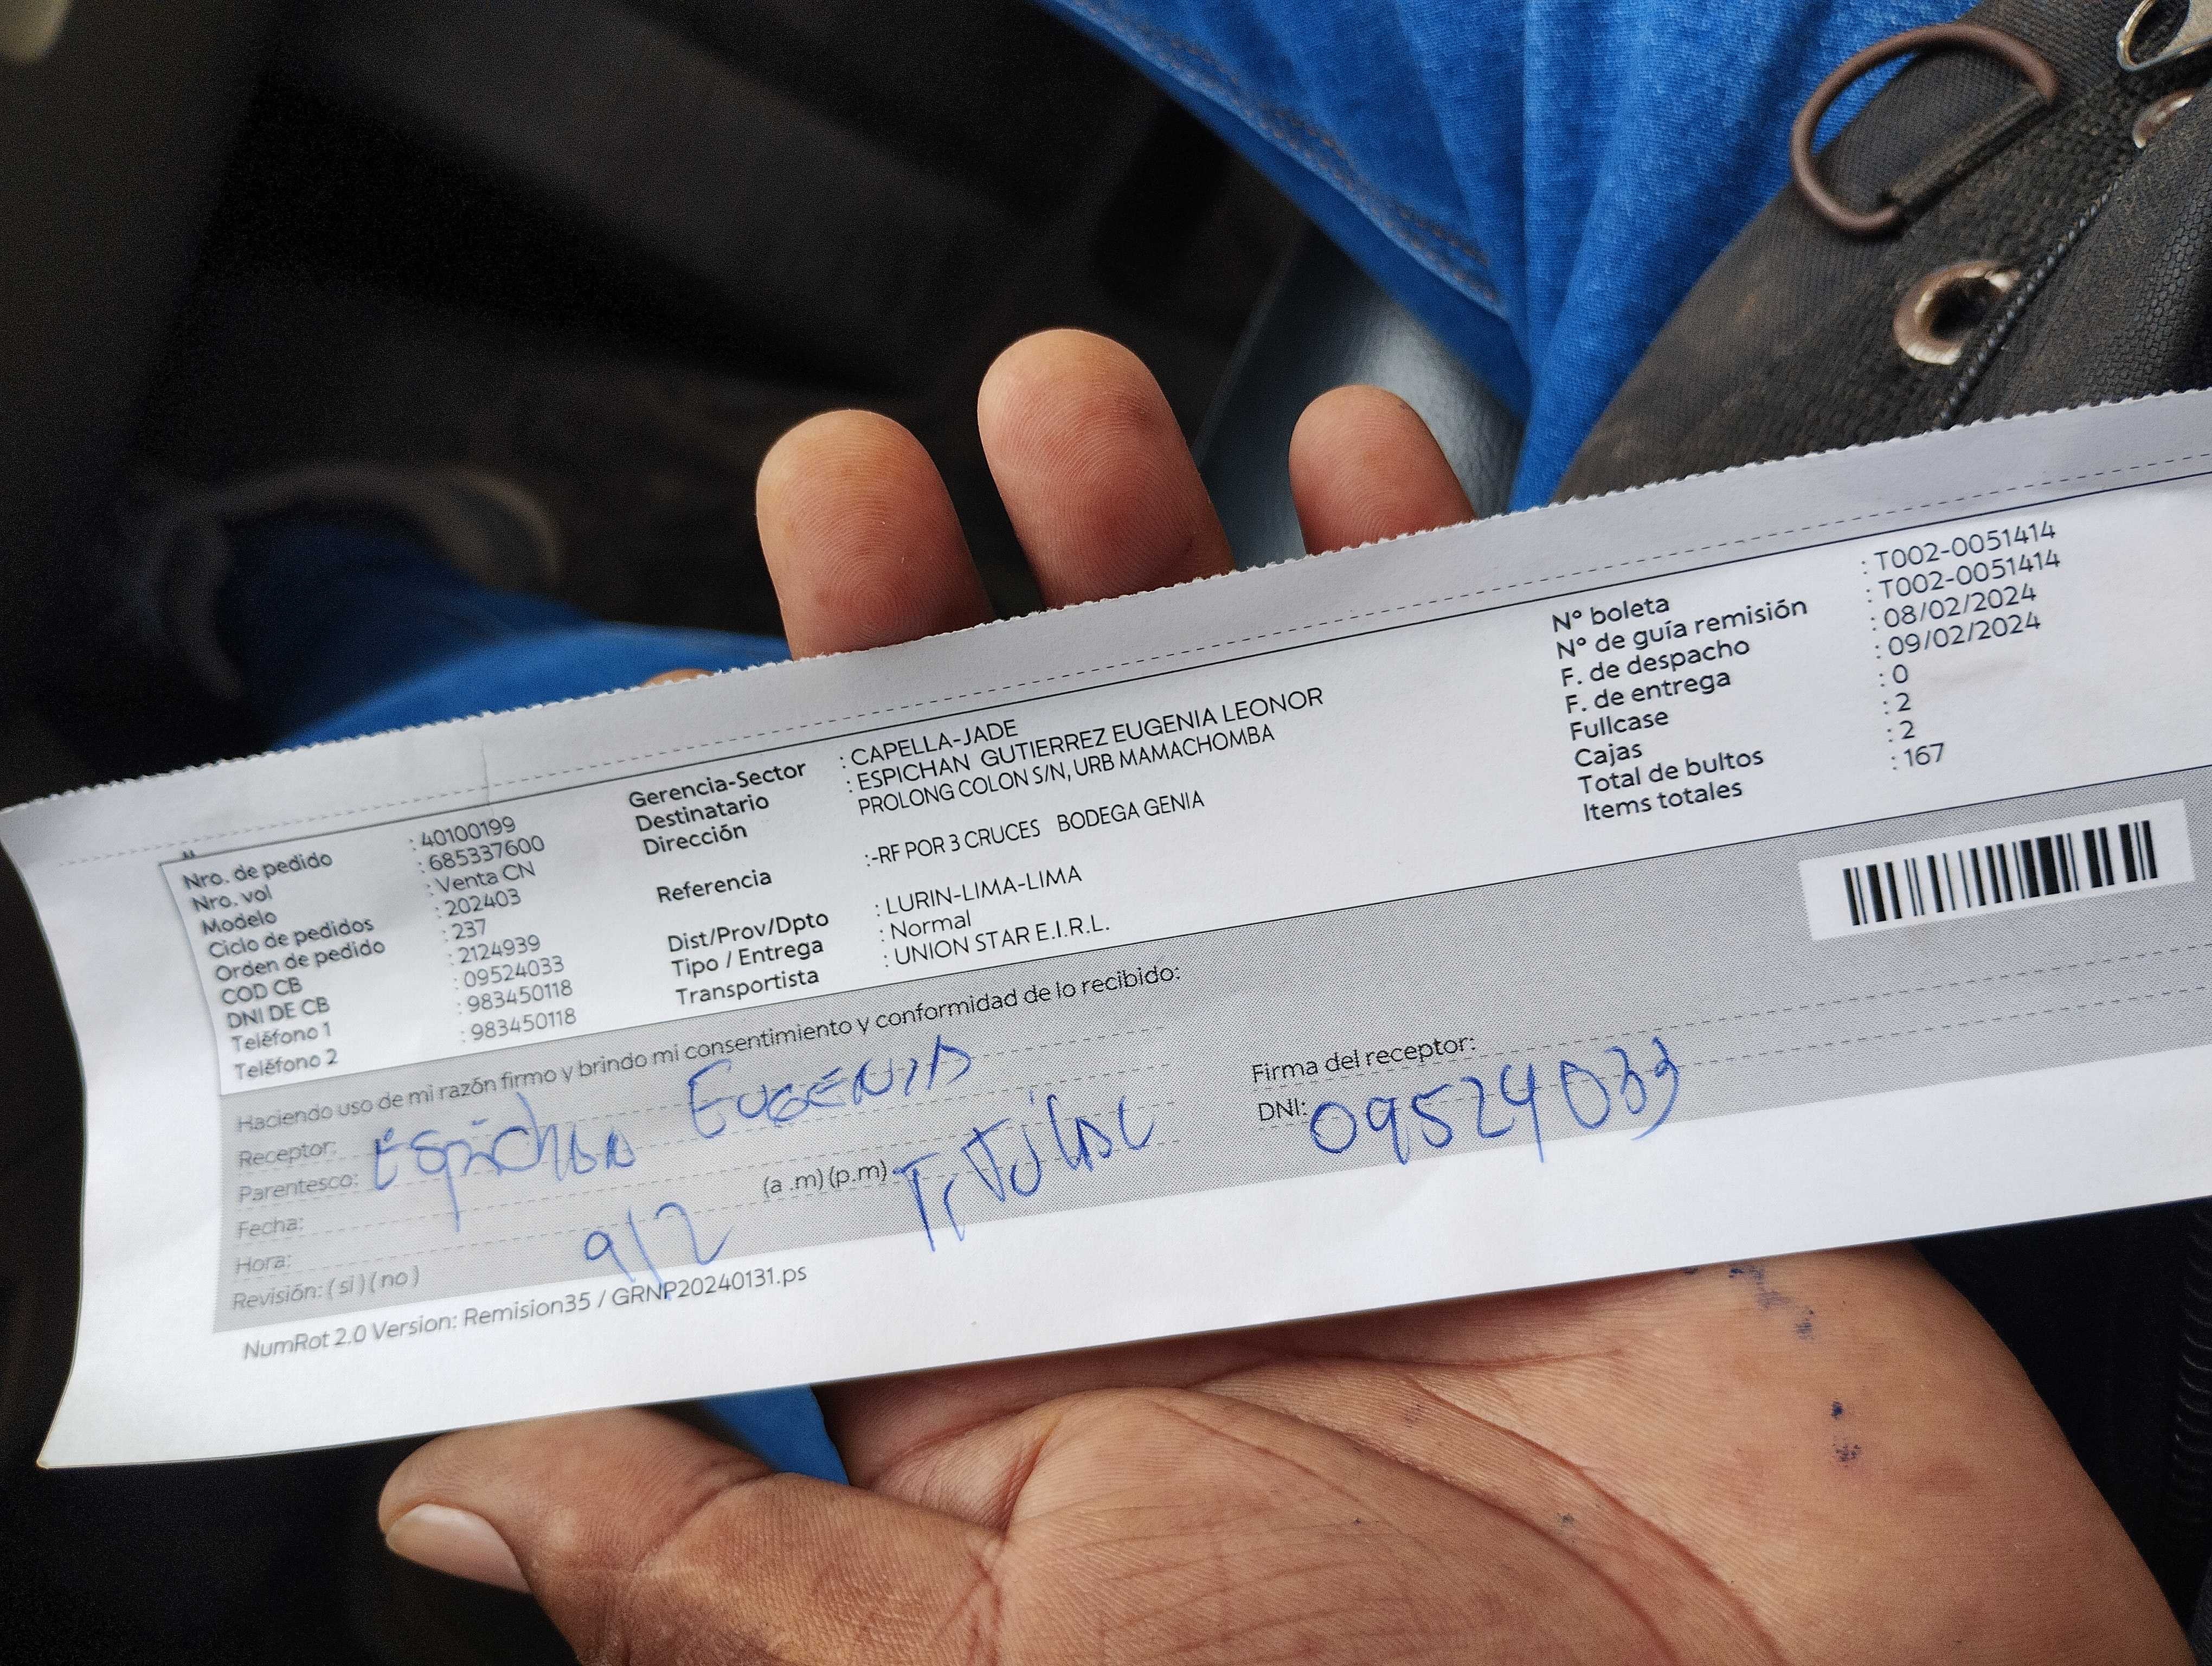 Nro. de pedido : 40100199
Nro. vol : 685337600
Modelo : Venta CN
Ciclo de pedidos : 202403
Orden de pedido : 237
COD CB : 2124939
DNI DE CB : 09524033
Teléfono 1 : 983450118
Teléfono 2 : 983450118
Gerencia-Sector : CAPELLA-JADE
Destinatario : ESPICHAN GUTIERREZ EUGENIA LEONOR
Dirección PROLONG COLON S/N, URB MAMACHOMBA
Referencia :-RF POR 3 CRUCES BODEGA GENIA
Dist/Prov/Dpto : LURIN-LIMA-LIMA
Tipo / Entrega : Normal
Transportista : UNION STAR E.I.R.L.
N° boleta : T002-0051414
N° de guía remisión : T002-0051414
F. de despacho : 08/02/2024
F. de entrega : 09/02/2024
Fullcase : 0
Cajas : 2
Total de bultos : 2
Items totales : 167
Haciendo uso de mi razón firmo y brindo mi consentimiento y conformidad de lo recibido:
Receptor: Espichan EUGENIA
Parentesco:
Fecha: 9/2
Hora: (a .m) (p.m)
Revisión: ( si ) ( no )
Firma del receptor:
DNI: 09524033
Titular
NumRot 2.0 Version: Remision35 / GRNP20240131.ps